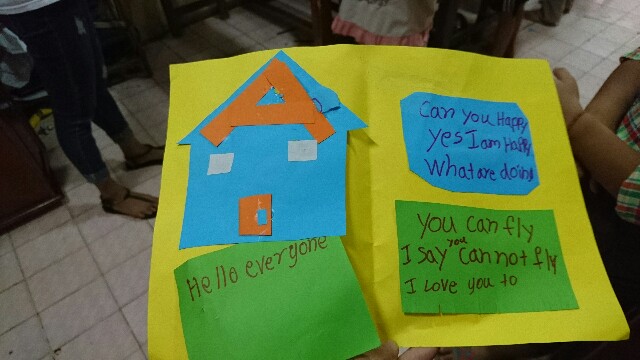 Hello everyone
Can you Happy
yes I am Happy
What are doing
You can fly
I say you cannot fly
I Love you to